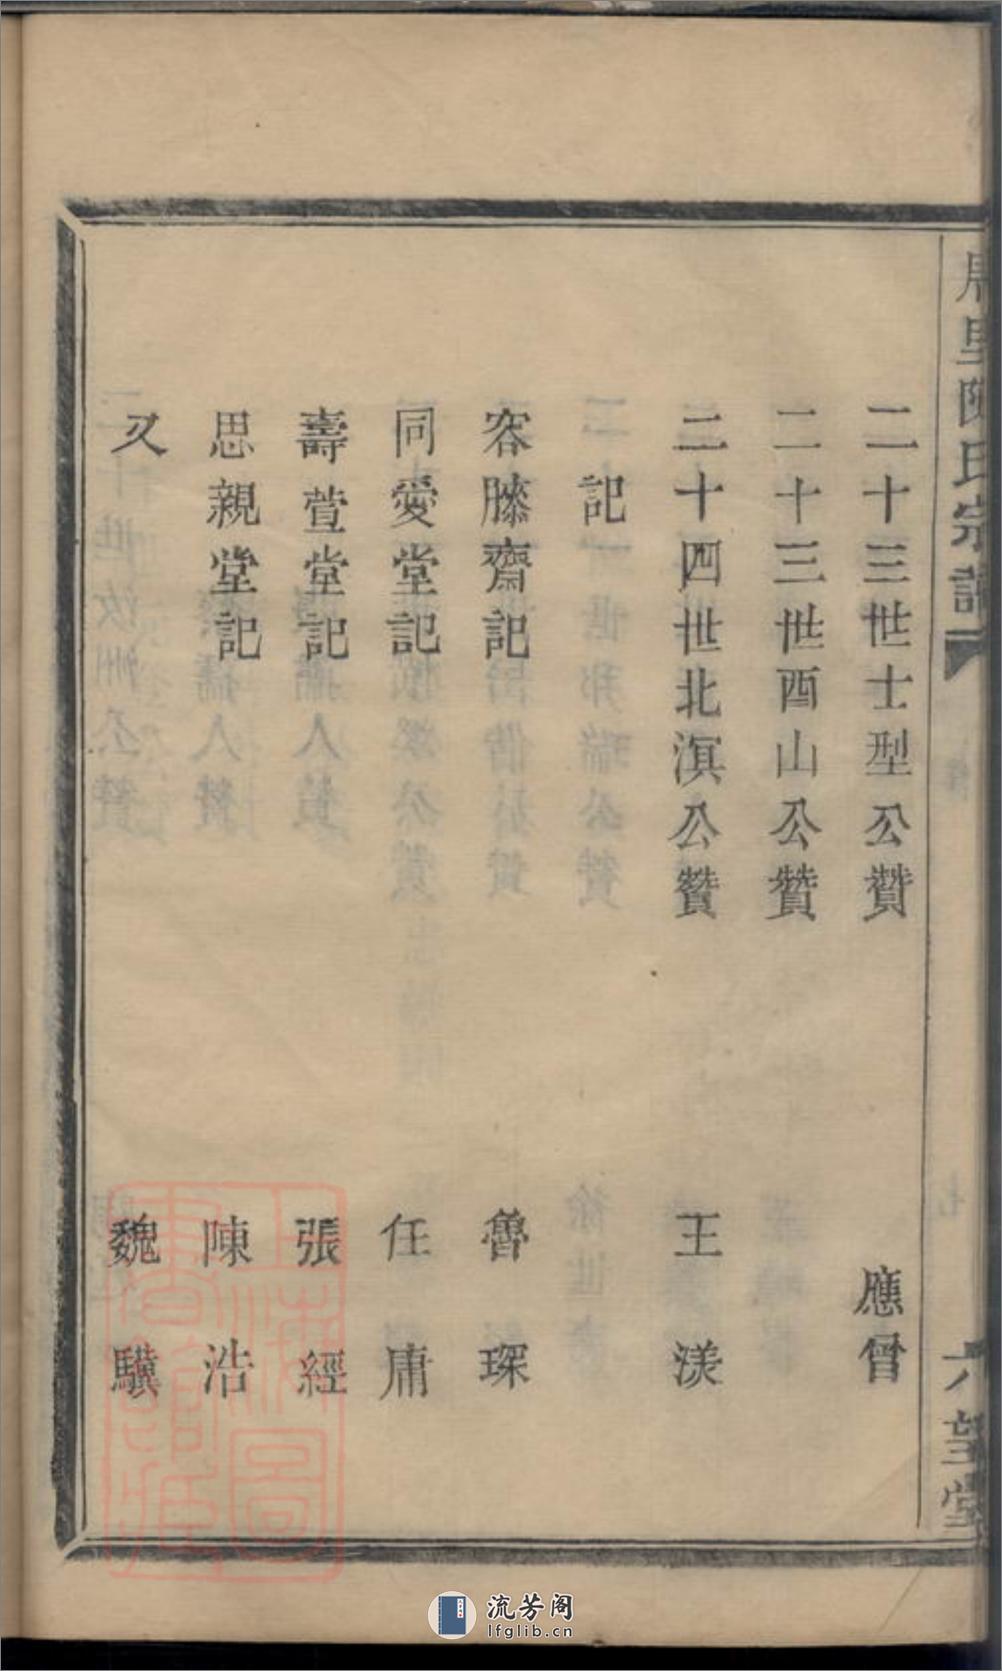 里陳氏宗譜
六望堂
二十三世士型公贊 應曾
二十三世酉山公贊
二十四世北溟公贊 王渼
記
容膝齋記 魯琛
同愛堂記 任庸
壽萱堂記 張經
思親堂記 陳浩
又 魏驥
上海圖書館藏
流芳阁
lfglib.cn